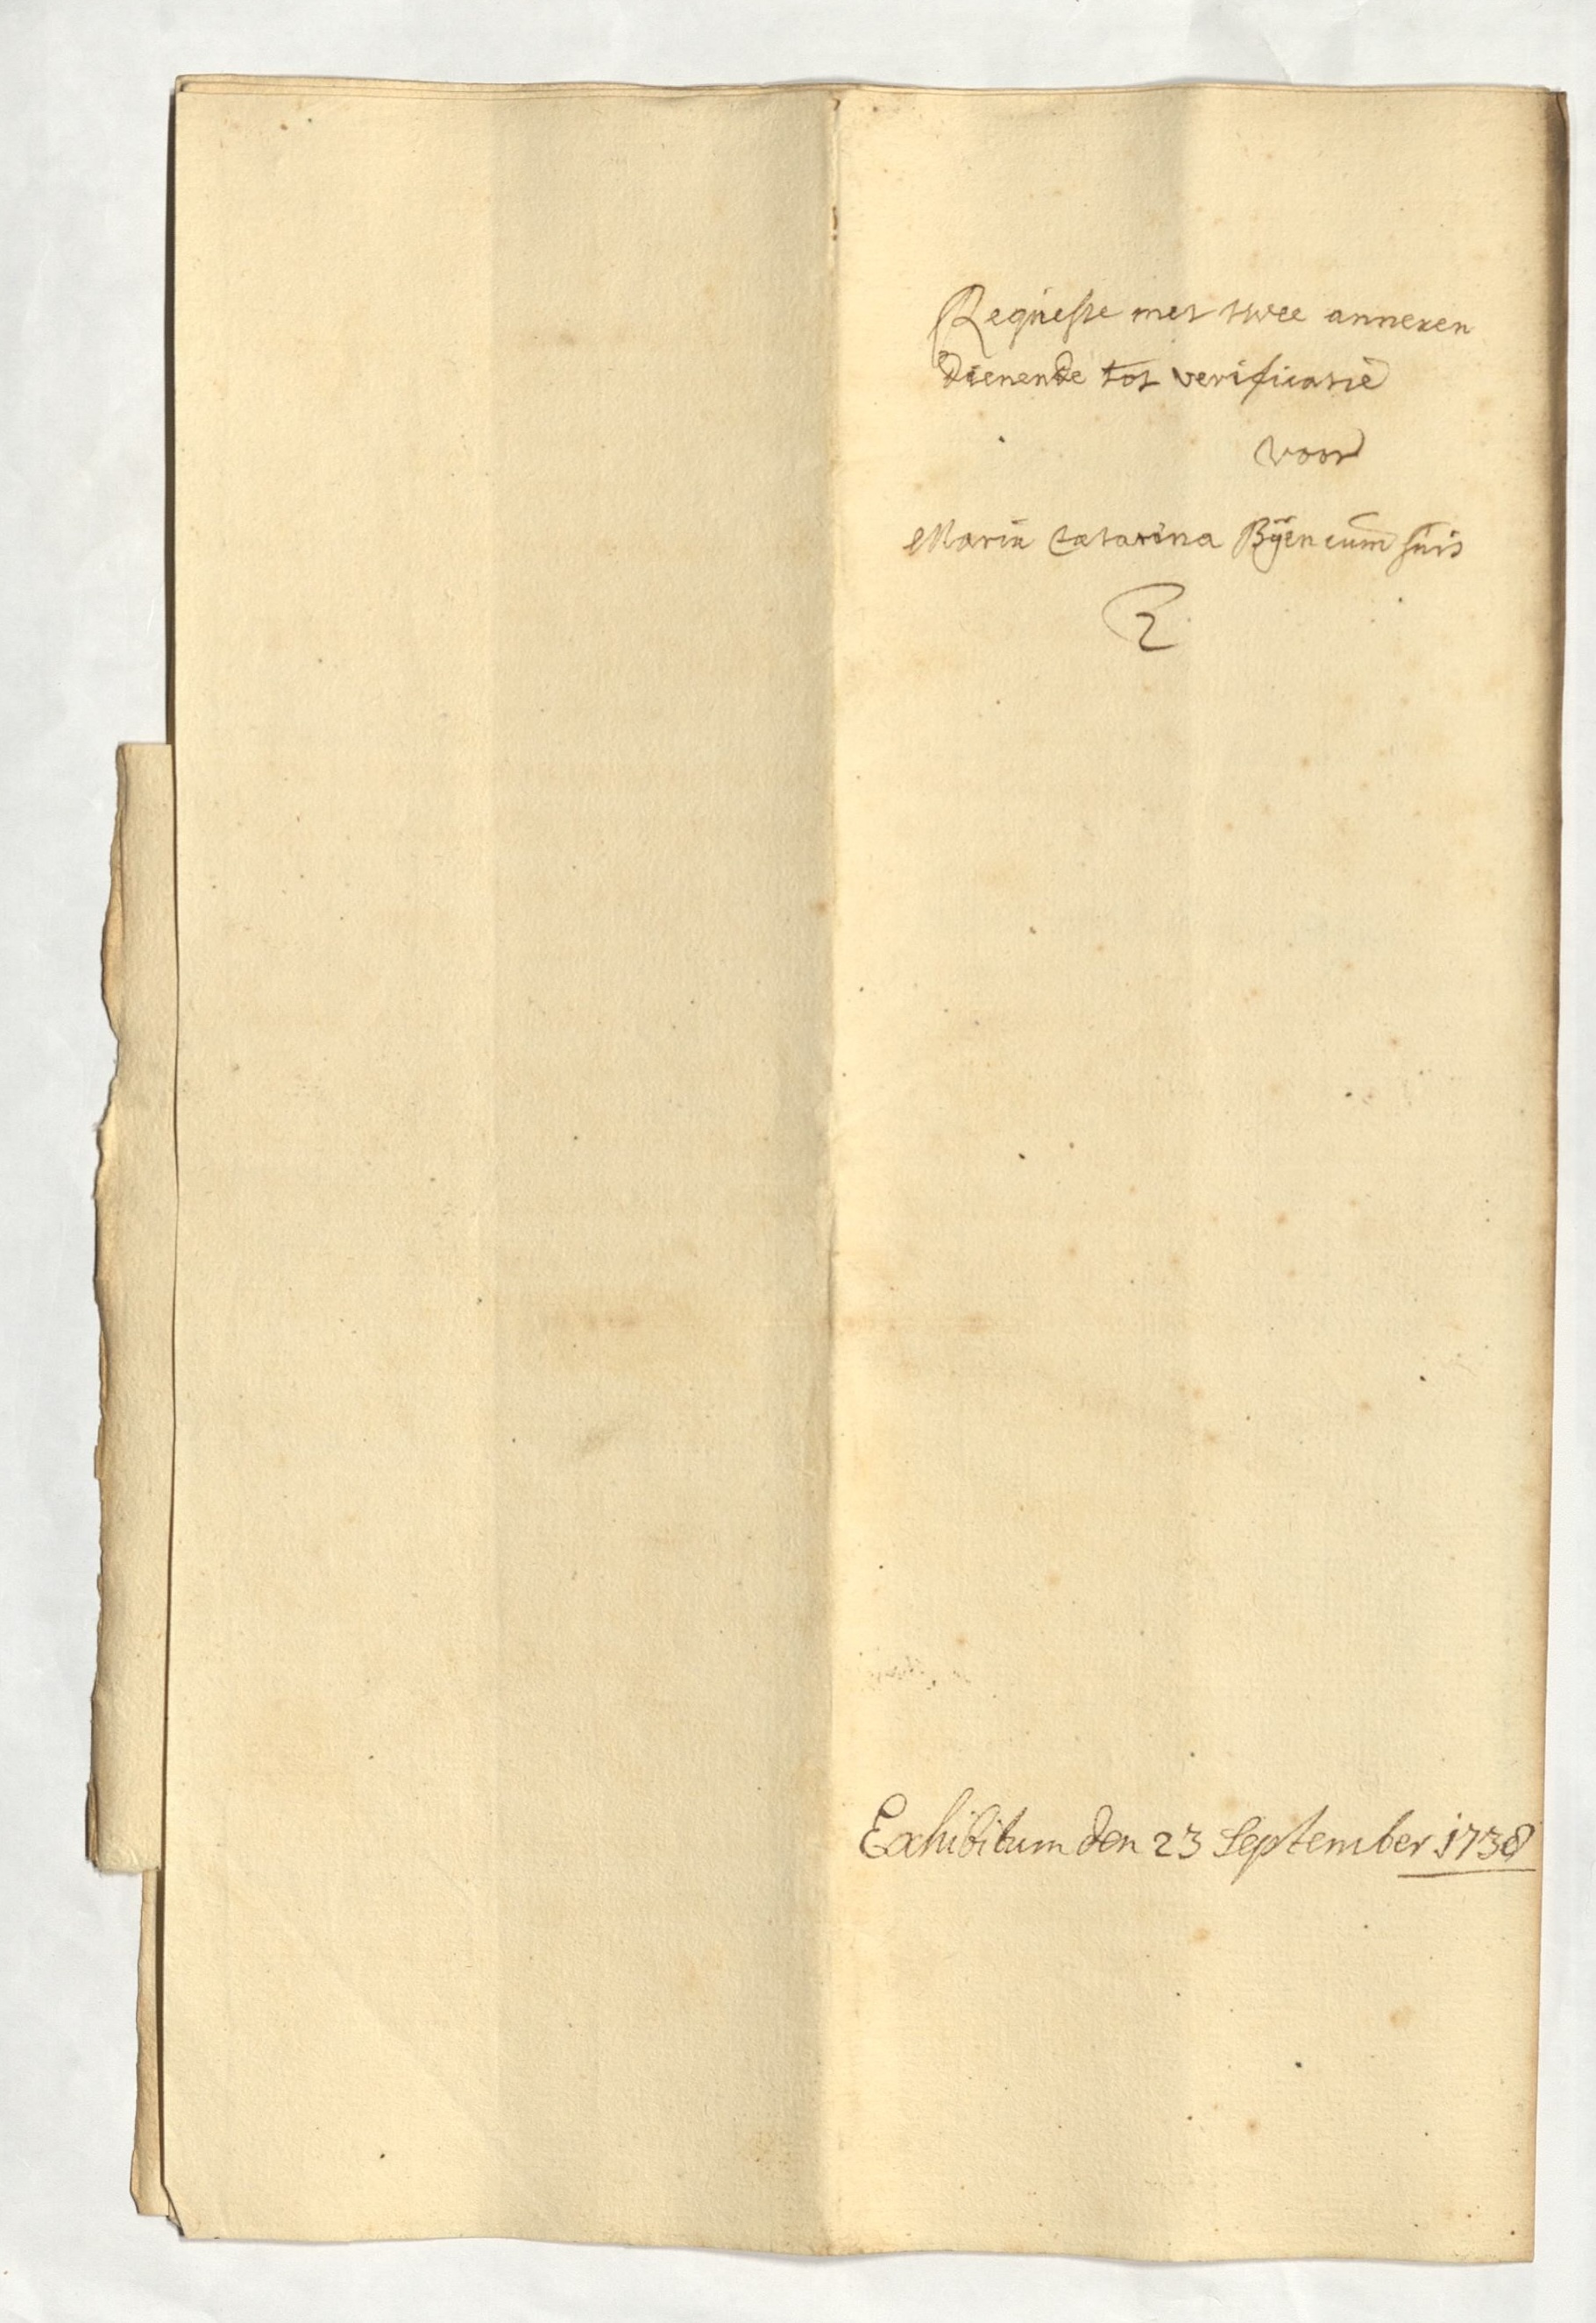 Requeste met twee annexen
dienende tot verificatie
voor
Maria Catarina Bÿen cum suis
Exhibitum den 23 September 1738